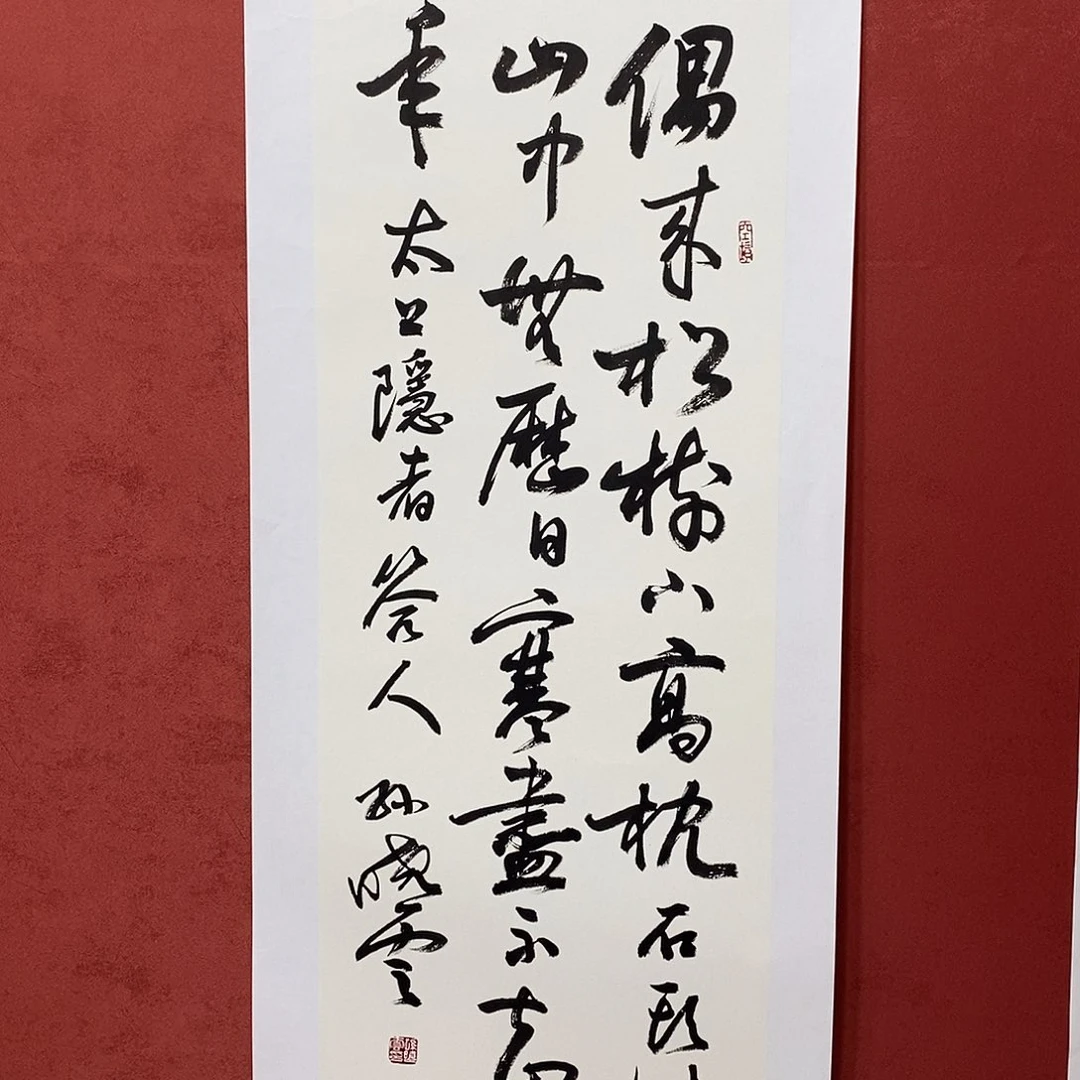 偶来松樹下高枕石頭
山中無歷日寒盡不知
年 太上隱者答人 孙晓雲